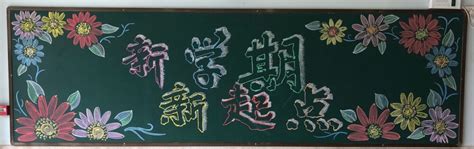 新学期
新起点